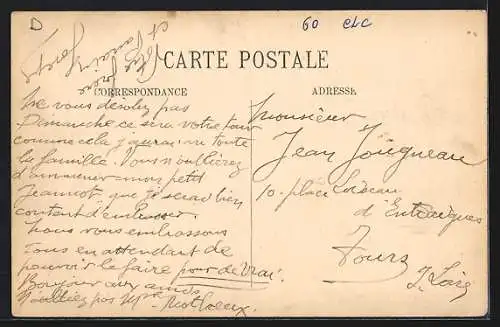 D
60 CLC
CARTE POSTALE
CORRESPONDANCE
ADRESSE
et
Joseph
Ne vous désolez pas
Dimanche ce sera votre tour
comme cela j'aurai vu toute
la famille. Vous n'oublierez
d'amener mon petit
Jeannot que je serai bien
content d'embrasser.
Nous vous embrassons
Tous en attendant de
pouvoir le faire pour de vrai.
Bonjour aux amis
N'oubliez pas Mme
Monsieur
Jean Jougneau
10. place Loiseau
d'Entraigues
Tours
I. Loire